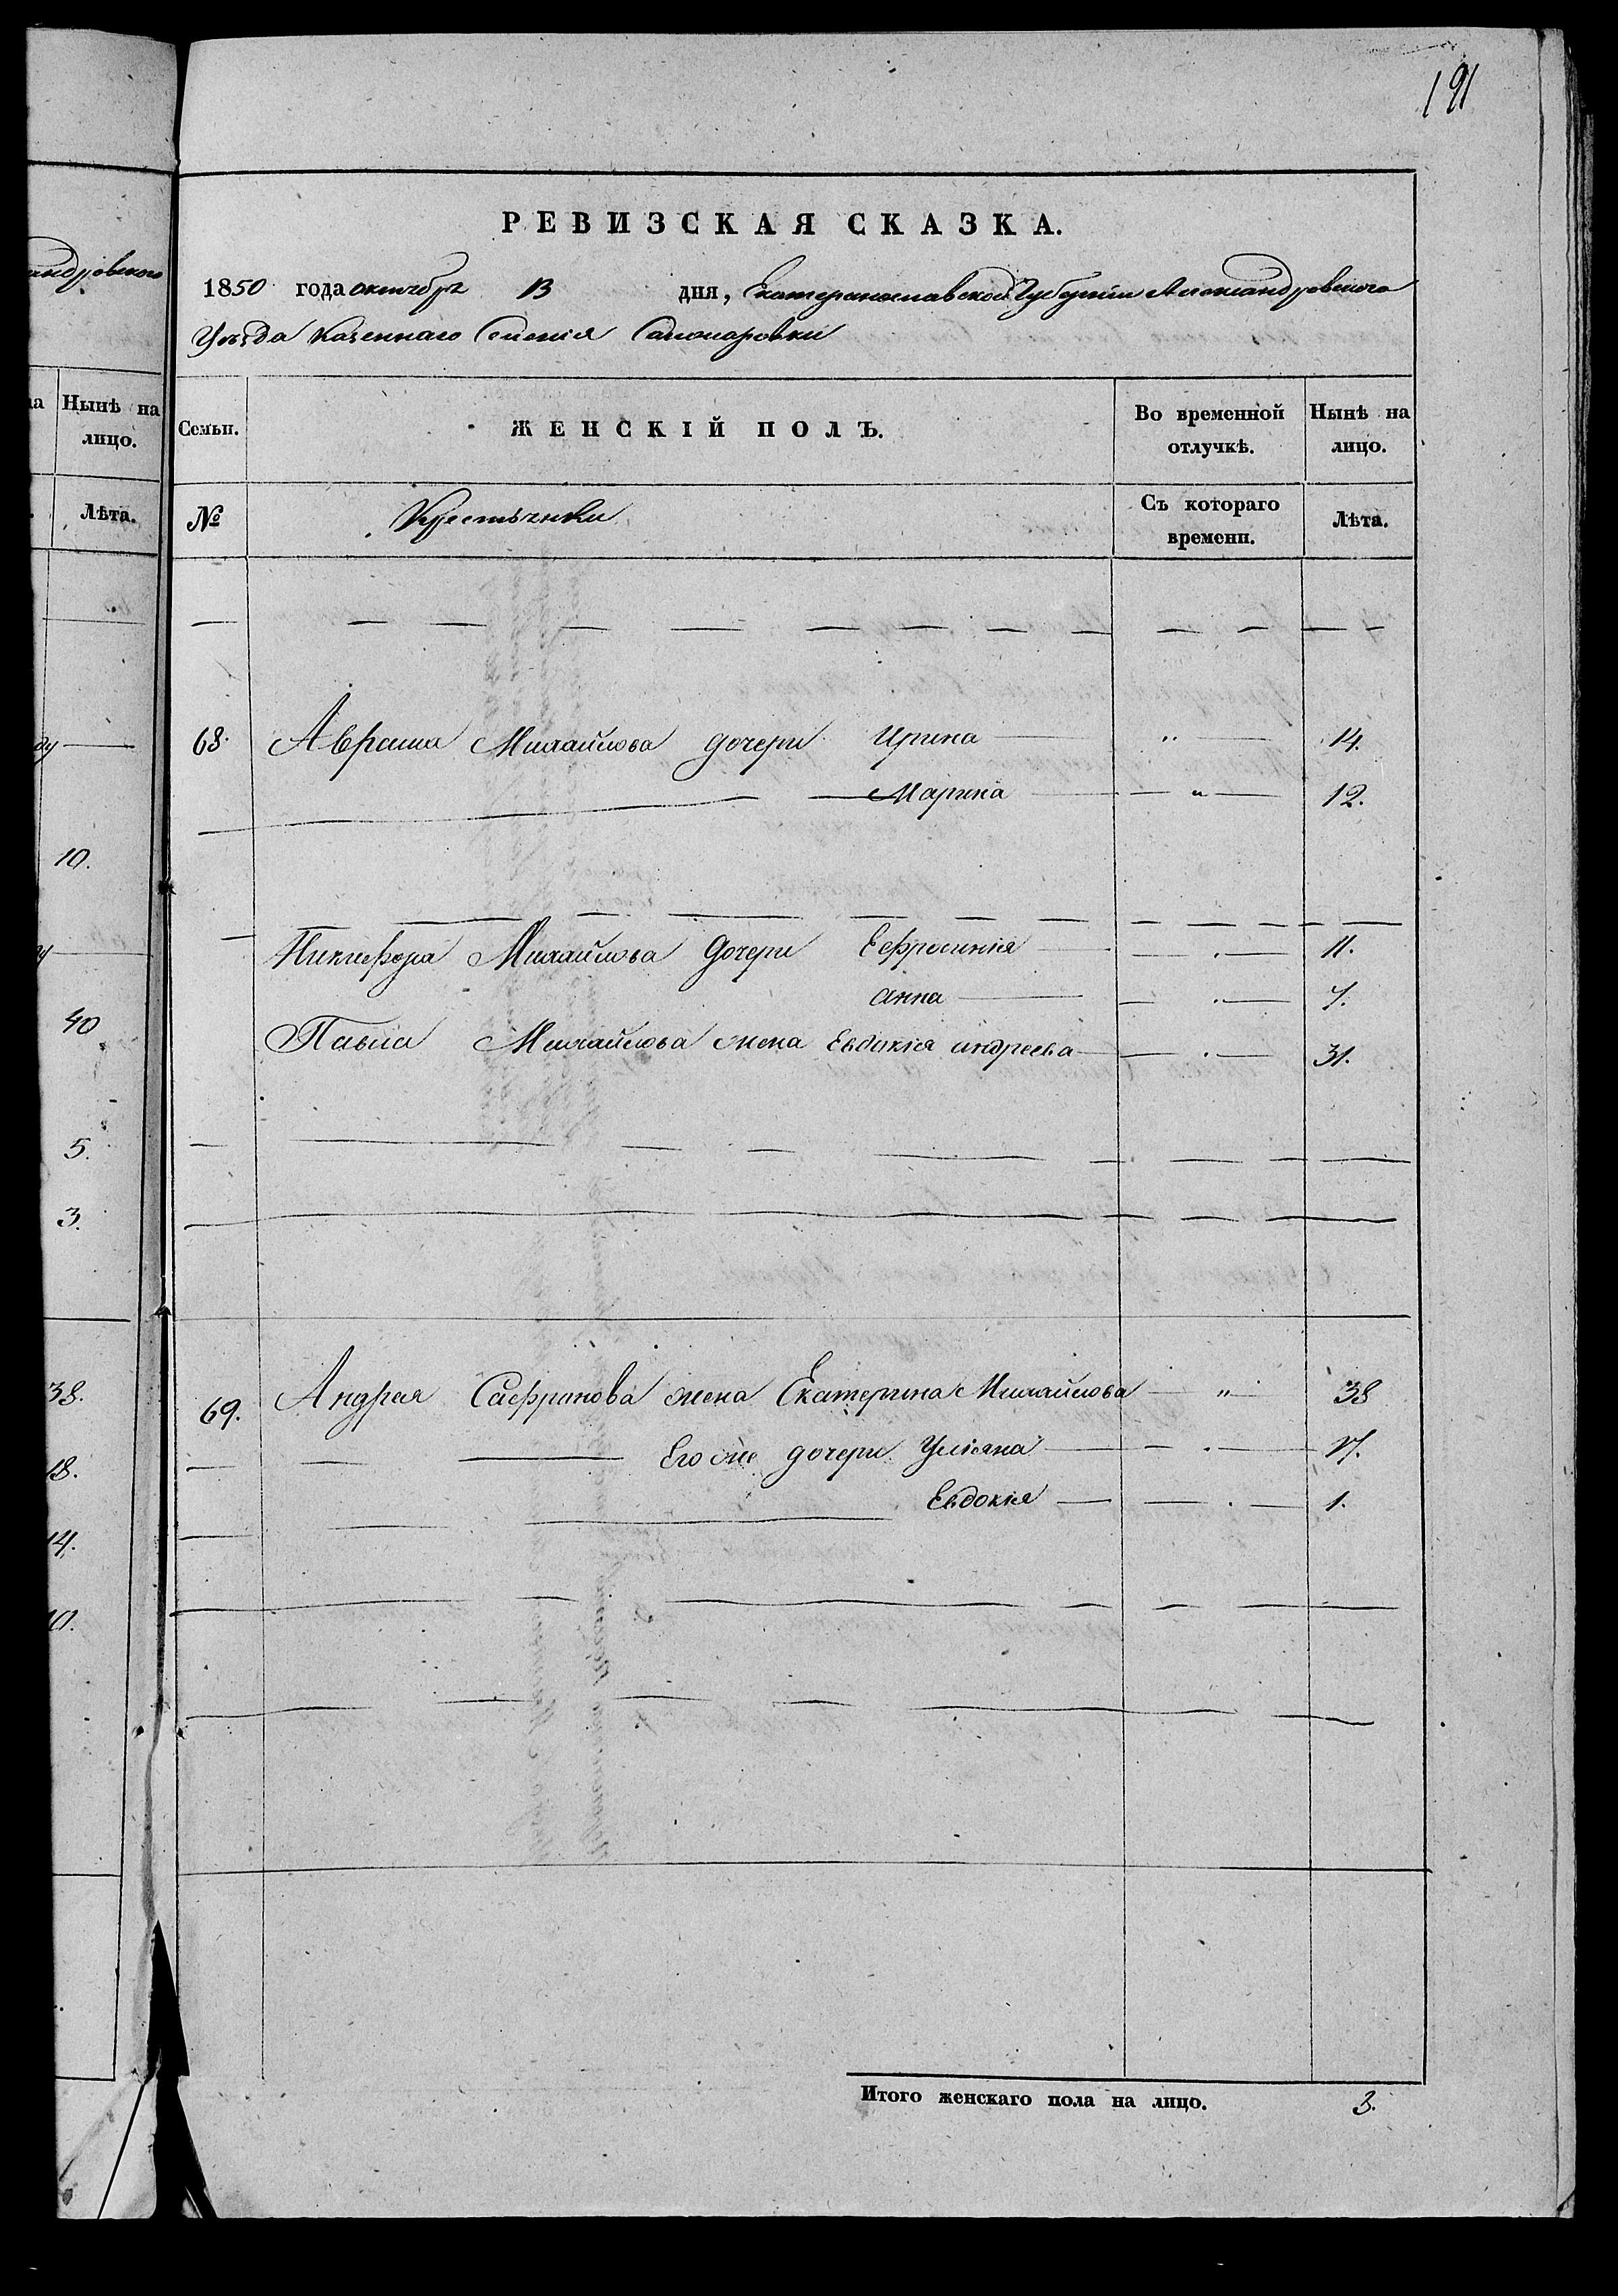 191
РЕВИЗСКАЯ СКАЗКА.
1850 года октября 13 дня, Екатеринославской Губернии Александровского
Уѣзда казеннаго Селенія
андровского
Семьи. ЖЕНСКІЙ ПОЛЪ. Во временной отлучкѣ. Нынѣ на лицо.
№ Крестьянки Съ котораго времени. Лѣта.
Нынѣ на лицо.
Лѣта.
68. Аврама Михайлова дочери Ирина 14.
Марина 12.
Никифора Михайлова Дочери Ефросинія 11.
анна 7.
Павла Михайлова жена Евдокія андреева 31.
69. Андрея Сафронова жена Екатерина Михайлова 38
Его же дочери Уліяна 17.
Евдокія 1.
Итого женскаго пола на лицо. 3.
10.
40
5.
3.
38.
18.
14.
10.